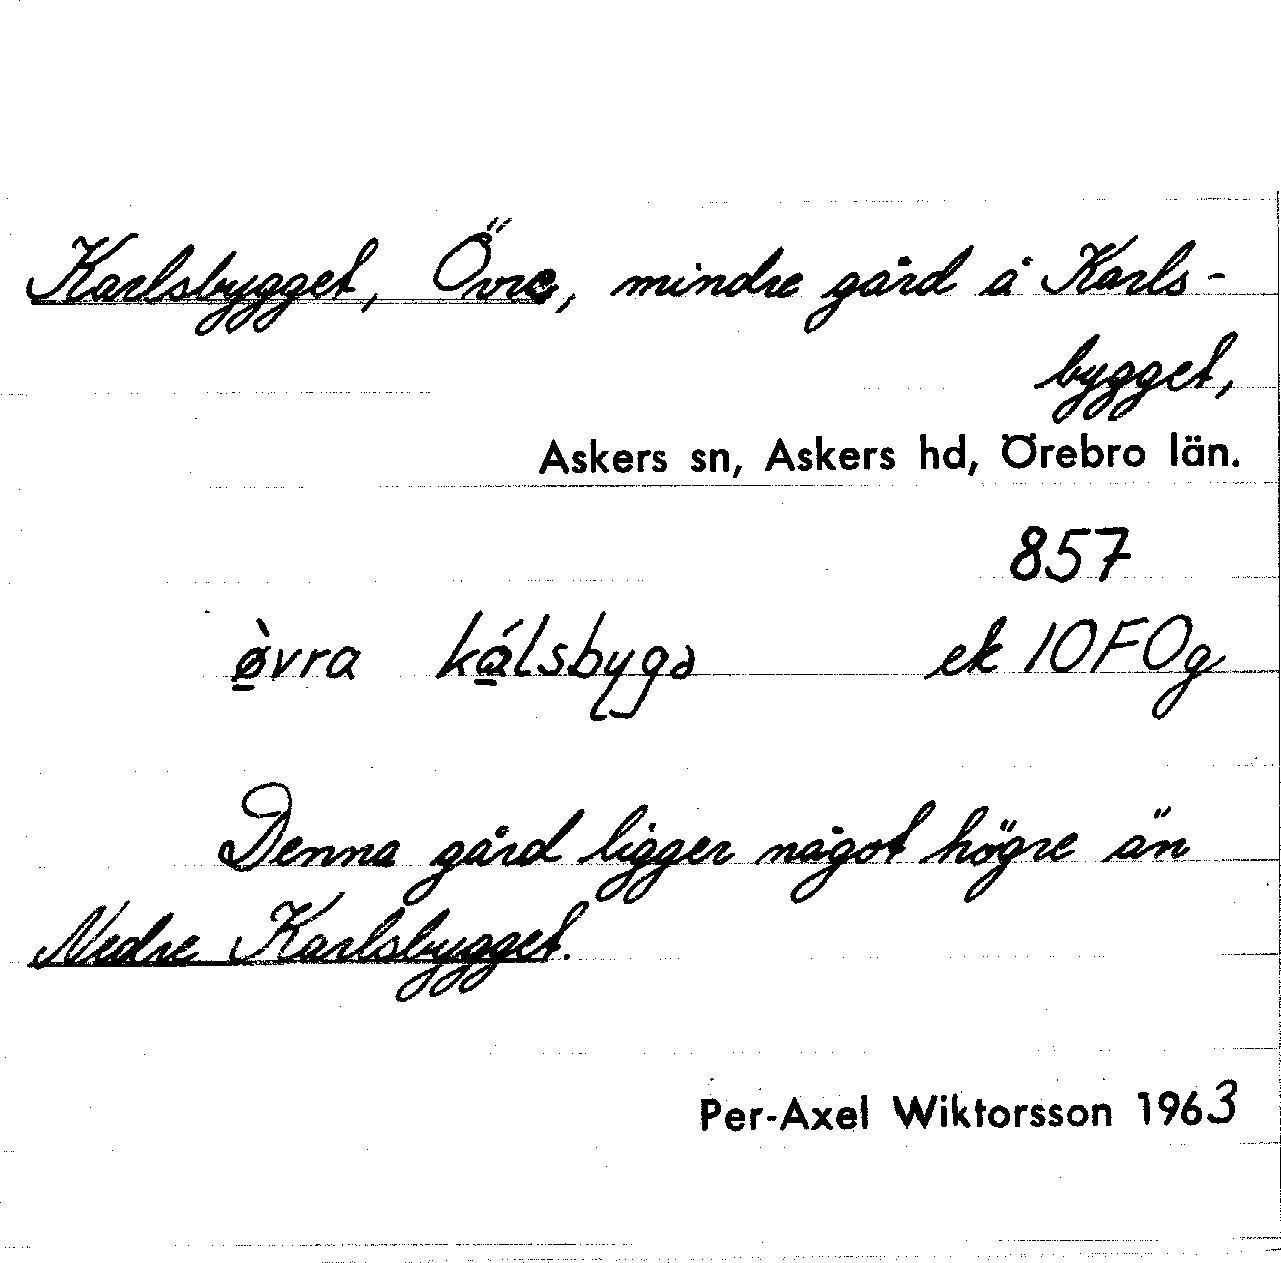 Karlsbygget, Övre, mindre gård å Karls-
bygget,
Askers sn, Askers hd, Örebro län.
857
ø̠̀vra ká̠lsbygə ek 10F0g
Denna gård ligger något högre än
Nedre Karlsbygget.
Per-Axel Wiktorsson 1963